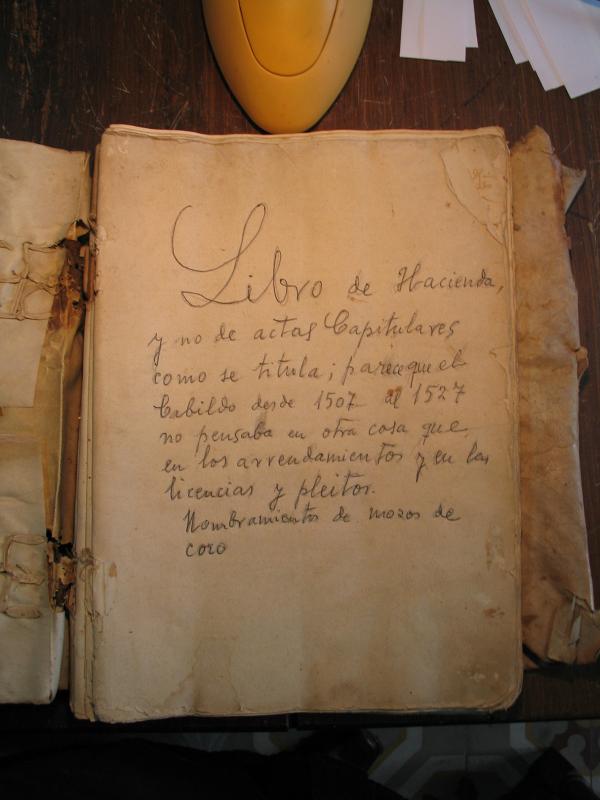 Libro de Hacienda,
y no de actas Capitulares
como se titula; parece que el
Cabildo desde 1507 al 1527
no pensaba en otra cosa que
en los arrendamientos y en las
licencias y pleitos.
Nombramientos de mozos de
coro